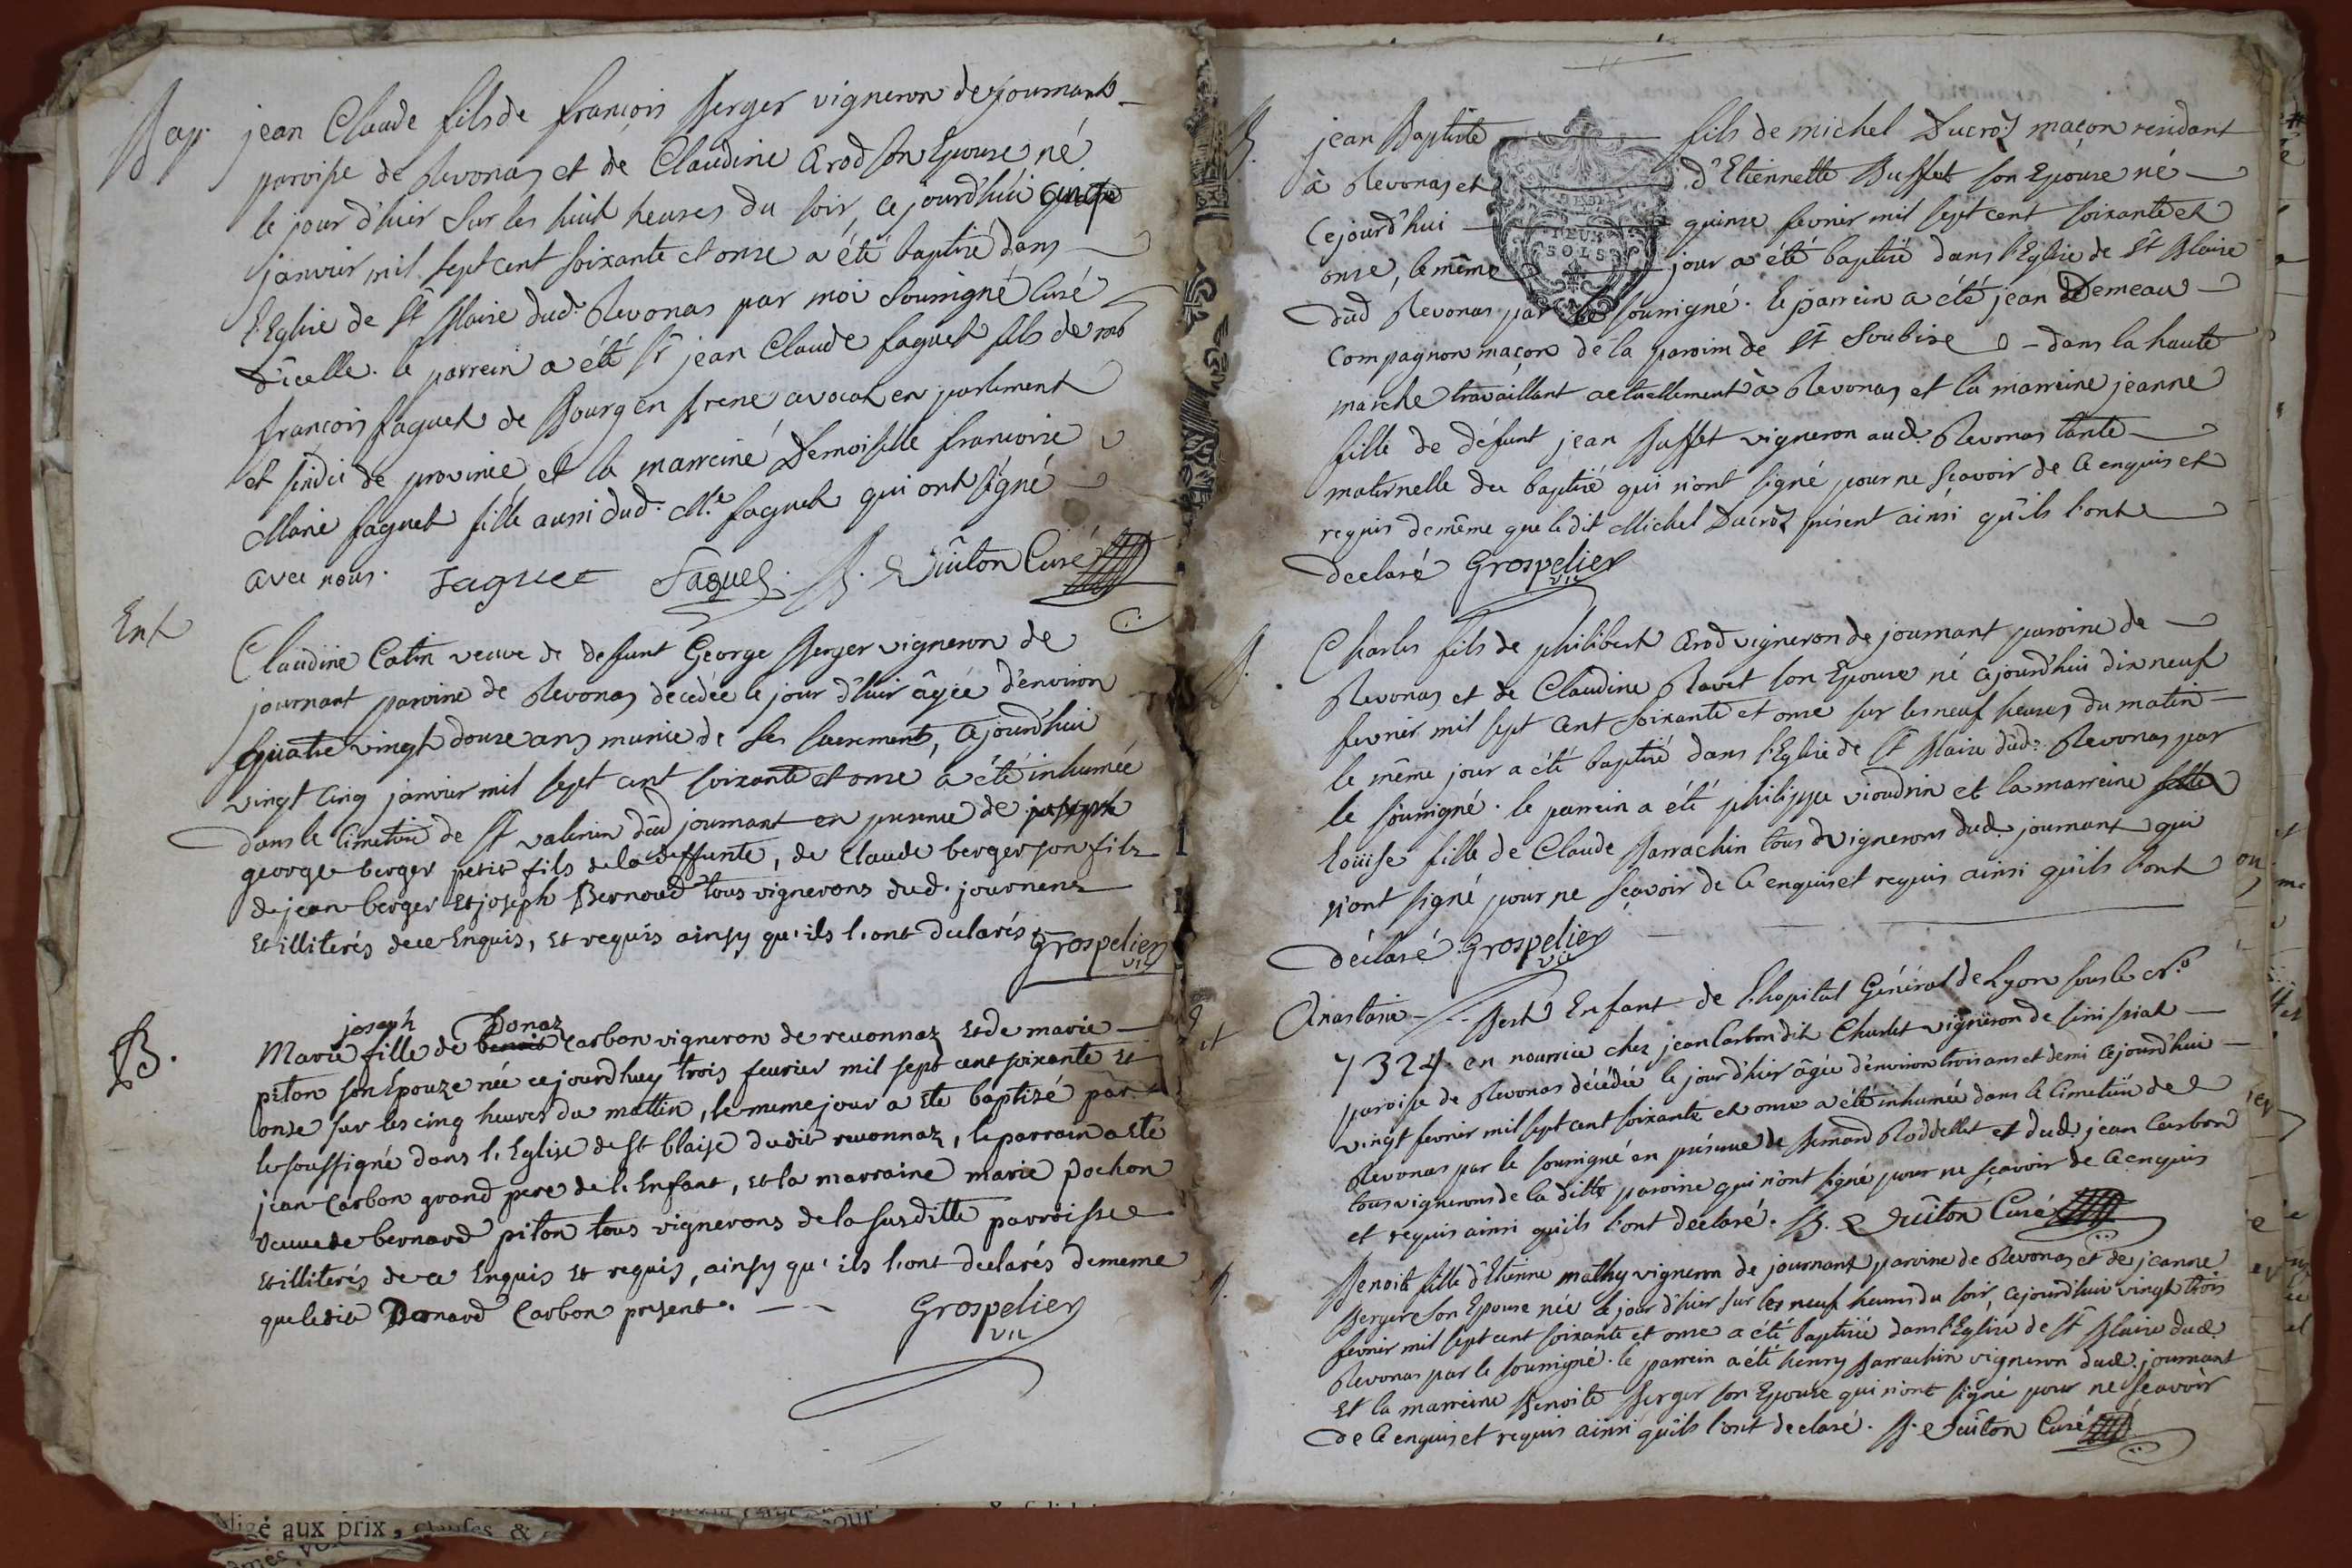 Bap. jean Claude fils de françois Berger vigneron de journant
paroisse de Revonas et de Claudine Arod son Epouse né
le jour d'hier sur les huit heures du soir, cejourd'hui quinse
janvier mil sept cent soixante et onze a été baptisé dans
l'Eglise de St Blaise dud. Revonas par moi soussigné Curé
d'icelle. le parrein a été Sr jean Claude faguet fils de me
francois faguet de Bourg en Bresse avocat en parlement
et sindic de province et la marreine Demoiselle francoise
Marie faguet fille aussi dud. Me. faguet qui ont signé
avec nous. Faguet Faguet B. Curé
Ent
Claudine Catin veuve de deffunt George Berger vigneron de
journant paroisse de Revonas décédée le jour d'hier âgée d'environ
quatre vingt douze ans munie de ses sacrements, cejourd'hui
vingt cinq janvier mil sept cent soixante et onse a été inhumée
dans le Cimetière de St valerin dud journant en presence de joseph
george berger petit fils de la deffunte, de Claude berger son fils
de jean berger et joseph Bernoud tous vignerons dud. journens
et illiterés de ce Enquis, et requis ainsy qu'ils l'ont declarés Grospelier
vic
joseph Donaz
B. Marie fille de benoit Carbon vigneron de reuonnaz et de marie
piton son Epouze née cejourdhuy trois feurier mil sept cent soixante et
onze sur les cinq heures du mattin, le meme jour a ete baptizé par
le soussigné dans l'Eglise de St blaise dudit reuonnaz, le parrain a eté
jean Carbon grand pere de l'Enfant, et la marraine marie pochon
veuue de bernard piton tous vignerons de la susditte parroisse
et illiterés de ce Enquis et requis, ainsy qu'ils l'ont declarés dememe
que ledit Bernard Carbon present.
Grospelier
vic
B. jean Baptiste fils de michel Ducros maçon residant
à Revonas et d'Etiennette Buffet son Epouse né
Cejourd'hui quinse fevrier mil sept cent soixante et
onse, le même jour a été baptisé dans l'Eglise de St Blaise
dud Revonas par le soussigné. le parrein a été jean Demeau
DEUX
SOLS
Compagnon maçon de la paroisse de St Soubise dans la haute
marche travaillant actuellement à Revonas et la marreine jeanne
fille de défunt jean Buffet vigneron aud. Revonas tante
maternelle du baptisé qui n'ont signé pour ne sçavoir de ce enquis et
requis de même que ledit Michel Ducros présent ainsi qu'ils l'ont
declaré Grospelier
vic
B. Charles fils de philibert Arod vigneron de journant paroisse de
Revonas et de Claudine Ravet son Epouse né cejourd'hui dix neuf
fevrier mil sept cent soixante et onse sur les neuf heures du matin
le même jour a été baptisé dans l'Eglise de St Blaise dud. Revonas par
le soussigné. le parrein a été philippe vioudrin et la marreine
Loüise fille de Claude Barrachin tous vignerons dud. journant qui
n'ont signé pour ne sçavoir de ce enquis et requis ainsi qu'ils l'ont
déclaré Grospelier
vic
Anastasie Enfant de l'hopital Général de Lyon sous le No.
7324 en nourrice chez jean Carbon dit Charlet vigneron de
paroisse de Revonas décédée le jour d'hier âgée d'environ trois ans et demi cejourd'hui
vingt fevrier mil sept cent soixante et onse a été inhumée dans le Cimetière de
Revonas par le soussigné en présence de Bernard Roddellet et dud. jean Carbon
tous vignerons de la ditte paroisse qui n'ont signé pour ne sçavoir de ce enquis
et requis ainsi qu'ils l'ont declaré. B. Curé
B. Benoite fille d'Etienne mathy vigneron de journant paroisse de Revonas et de jeanne
Berger son Epouse née le jour d'hier sur les neuf heures du soir, cejourd'hui vingt trois
fevrier mil sept cent soixante et onse a été baptisée dans l'Eglise de St Blaise dud.
Revonas par le soussigné. le parrein a été henry Barrachin vigneron dud. journant
et la marreine Benoite Berger son Epouse qui n'ont signé pour ne sçavoir
de ce enquis et requis ainsi qu'ils l'ont declaré. B. Curé
aux prix, clauses &